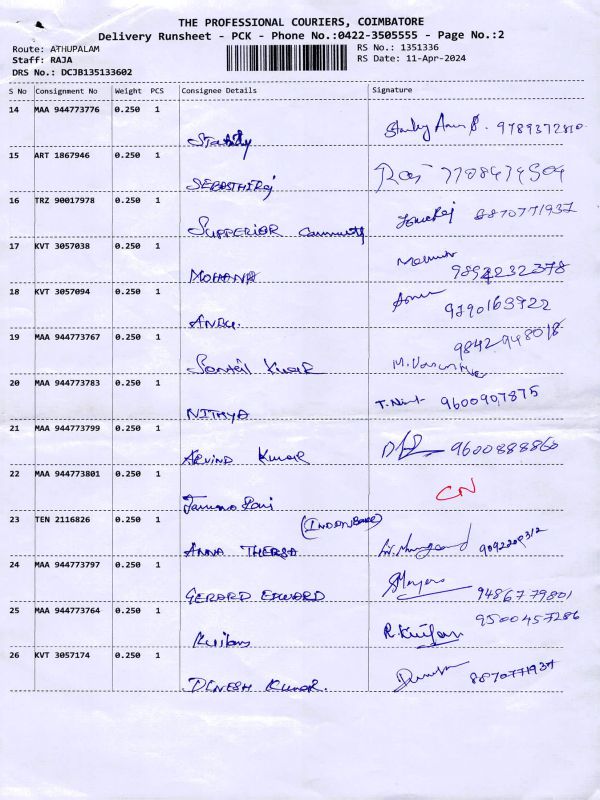 THE PROFESSIONAL COURIERS, COIMBATORE
Delivery Runsheet - PCK - Phone No.:0422-3505555 - Page No.:2
Route: ATHUPALAM RS No.: 1351336
Staff: RAJA RS Date: 11-Apr-2024
DRS No.: DCJB135133602
S No Consignment No Weight PCS Consignee Details Signature
14 MAA 944773776 0.250 1
Stanley 9789372810
15 ART 1867946 0.250 1
Raj
SEBASTHIRaj
16 TRZ 90017978 0.250 1
8870771937
SUPPERIOR Community
17 KVT 3057038 0.250 1
MOHANA 9894232378
18 KVT 3057094 0.250 1
9290163922
ANBU.
19 MAA 944773767 0.250 1
9842948018
Kumar
20 MAA 944773783 0.250 1
9600907875
NITHYA
21 MAA 944773799 0.250 1
9600888860
ARVIND Kumar
22 MAA 944773801 0.250 1
CN
Rani
23 TEN 2116826 0.250 1
ANNA THERSA
24 MAA 944773797 0.250 1
GERARD EDWARD 9486779801
25 MAA 944773764 0.250 1
9500457286
26 KVT 3057174 0.250 1
8870771937
DINESH KUMAR.